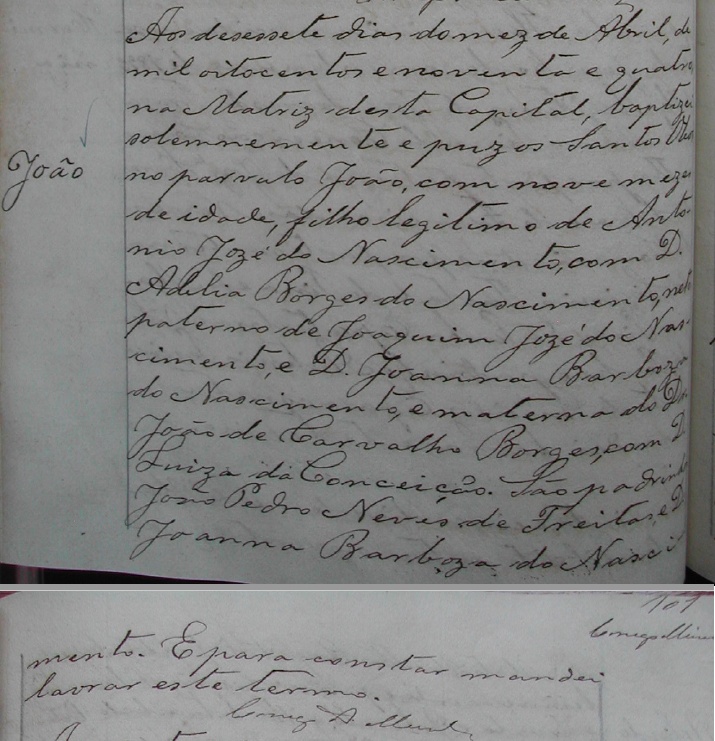 Aos desessete dias do mez de Abril, de
mil oitocentos e noventa e quatro
na Matriz desta Capital, baptizei
solemnemente e puz os Santos
João
no parvulo João, com nove mezes
de idade, filho legitimo de Anto-
nio Jozé do Nascimento, com D.
Adelia Borges do Nascimento, neto
paterno de Joaquim Jozé do Nas-
cimento, e D. Joanna Barboza
do Nascimento, e materna do Dr.
João de Carvalho Borges, com D.
Luiza da Conceição. São padrinhos
João Pedro Neves de Freitas, e D.
Joanna Barboza do Nasci-
101
mento. E para constar mandei
lavrar este termo.
Conego